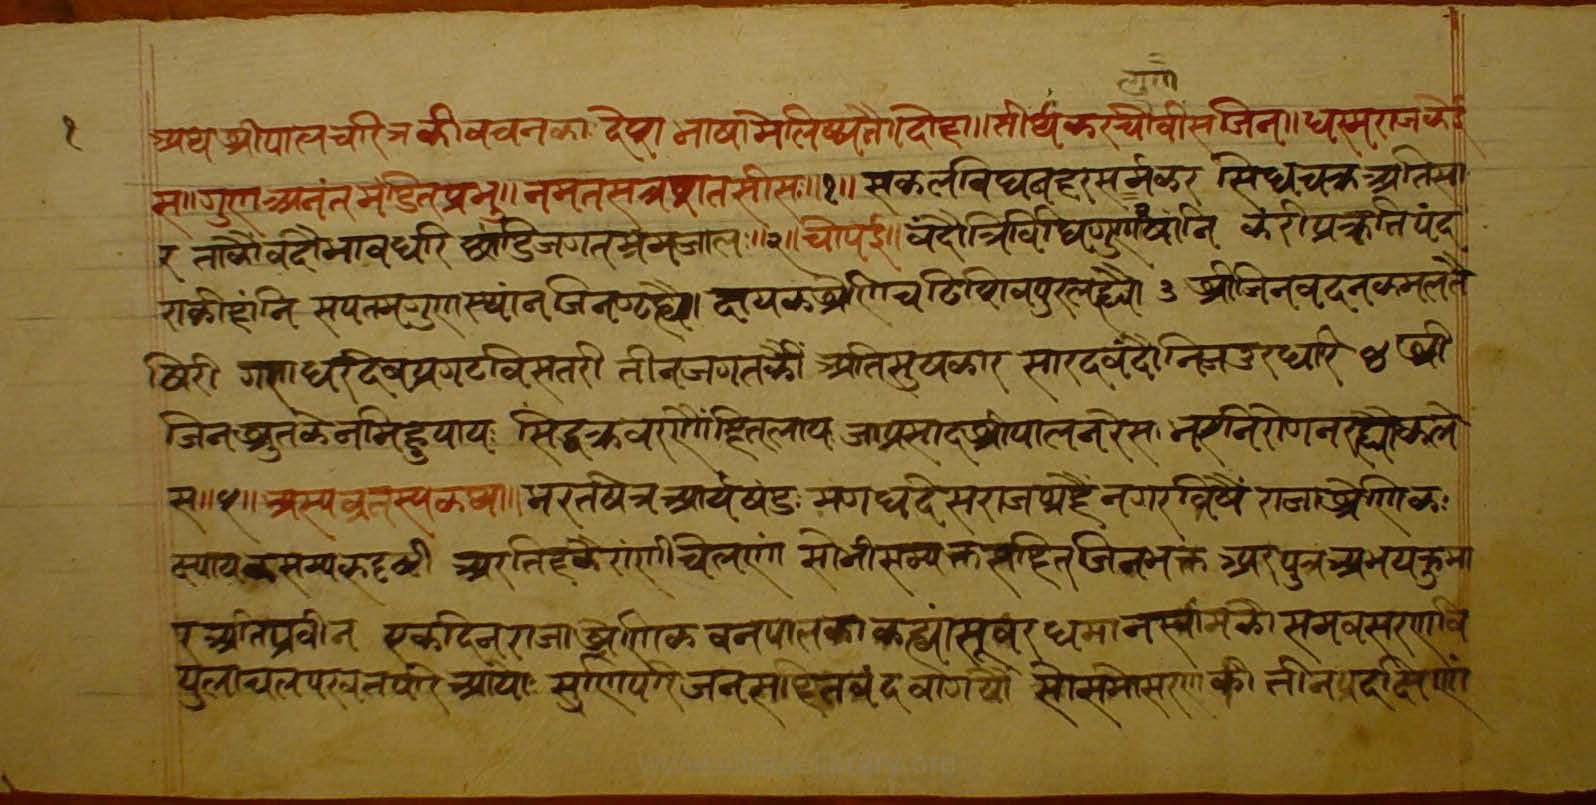 १
अथ श्रीपाल चरित्र की वचनका देस भाषामै लिष्यतै॥ दोहा॥ तीर्थंकर चौवीस जिन॥ धरमराज के ई
स॥ गुण अनंत मंडित प्रभू॥ नमत सत्र सत सीस॥१॥ सकल विघन हर सर्मकर सिधचक्र अतिसा
र ताकौ वंदौ भाव धरि छांडि जगत भ्रमजाल॥२॥ चौपई॥ वंदौ त्रिविधि गुणषांनि करी प्रक्रति पंद
रा की हांनि सपतम गुणस्थांन जिन गह्यौ। क्षायक श्रेणि चढि सिवपुर लह्यौ ३ श्रीजिनवदन कमलतै
षिरी गणधरदेव प्रगट विसतरी तीन जगत कौं अति सुषकार सारद वंदौ निज उर धारि ४ श्री
जिनश्रुत कै नमि हु पाय सिद्धचक्र वरणौं हित लाय जा प्रसाद श्रीपाल नरेस। भए निरोग न रह्यौ कले
स॥५॥ अस्य व्रतस्य कथा॥ भरतषेत्र आर्यषंड मगधदेस राजग्रहै नगर विषै राजा श्रेणिक
क्ष्यायक सम्यकदृष्टी अर तिहकै रांणी चेलणां सो भी सम्यक्त सहित जिनभक्त अर पुत्र अभयकुमा
र अति प्रवीन एक दिन राजा श्रेणिक वनपालका कह्यां सू वरधमांन स्वांम कौ समवसरण वि
पुलाचल परवत परि आयो सुणि परिजन सहित वंदवा गयौ सो समोसरण की तीन प्रदक्षिणां